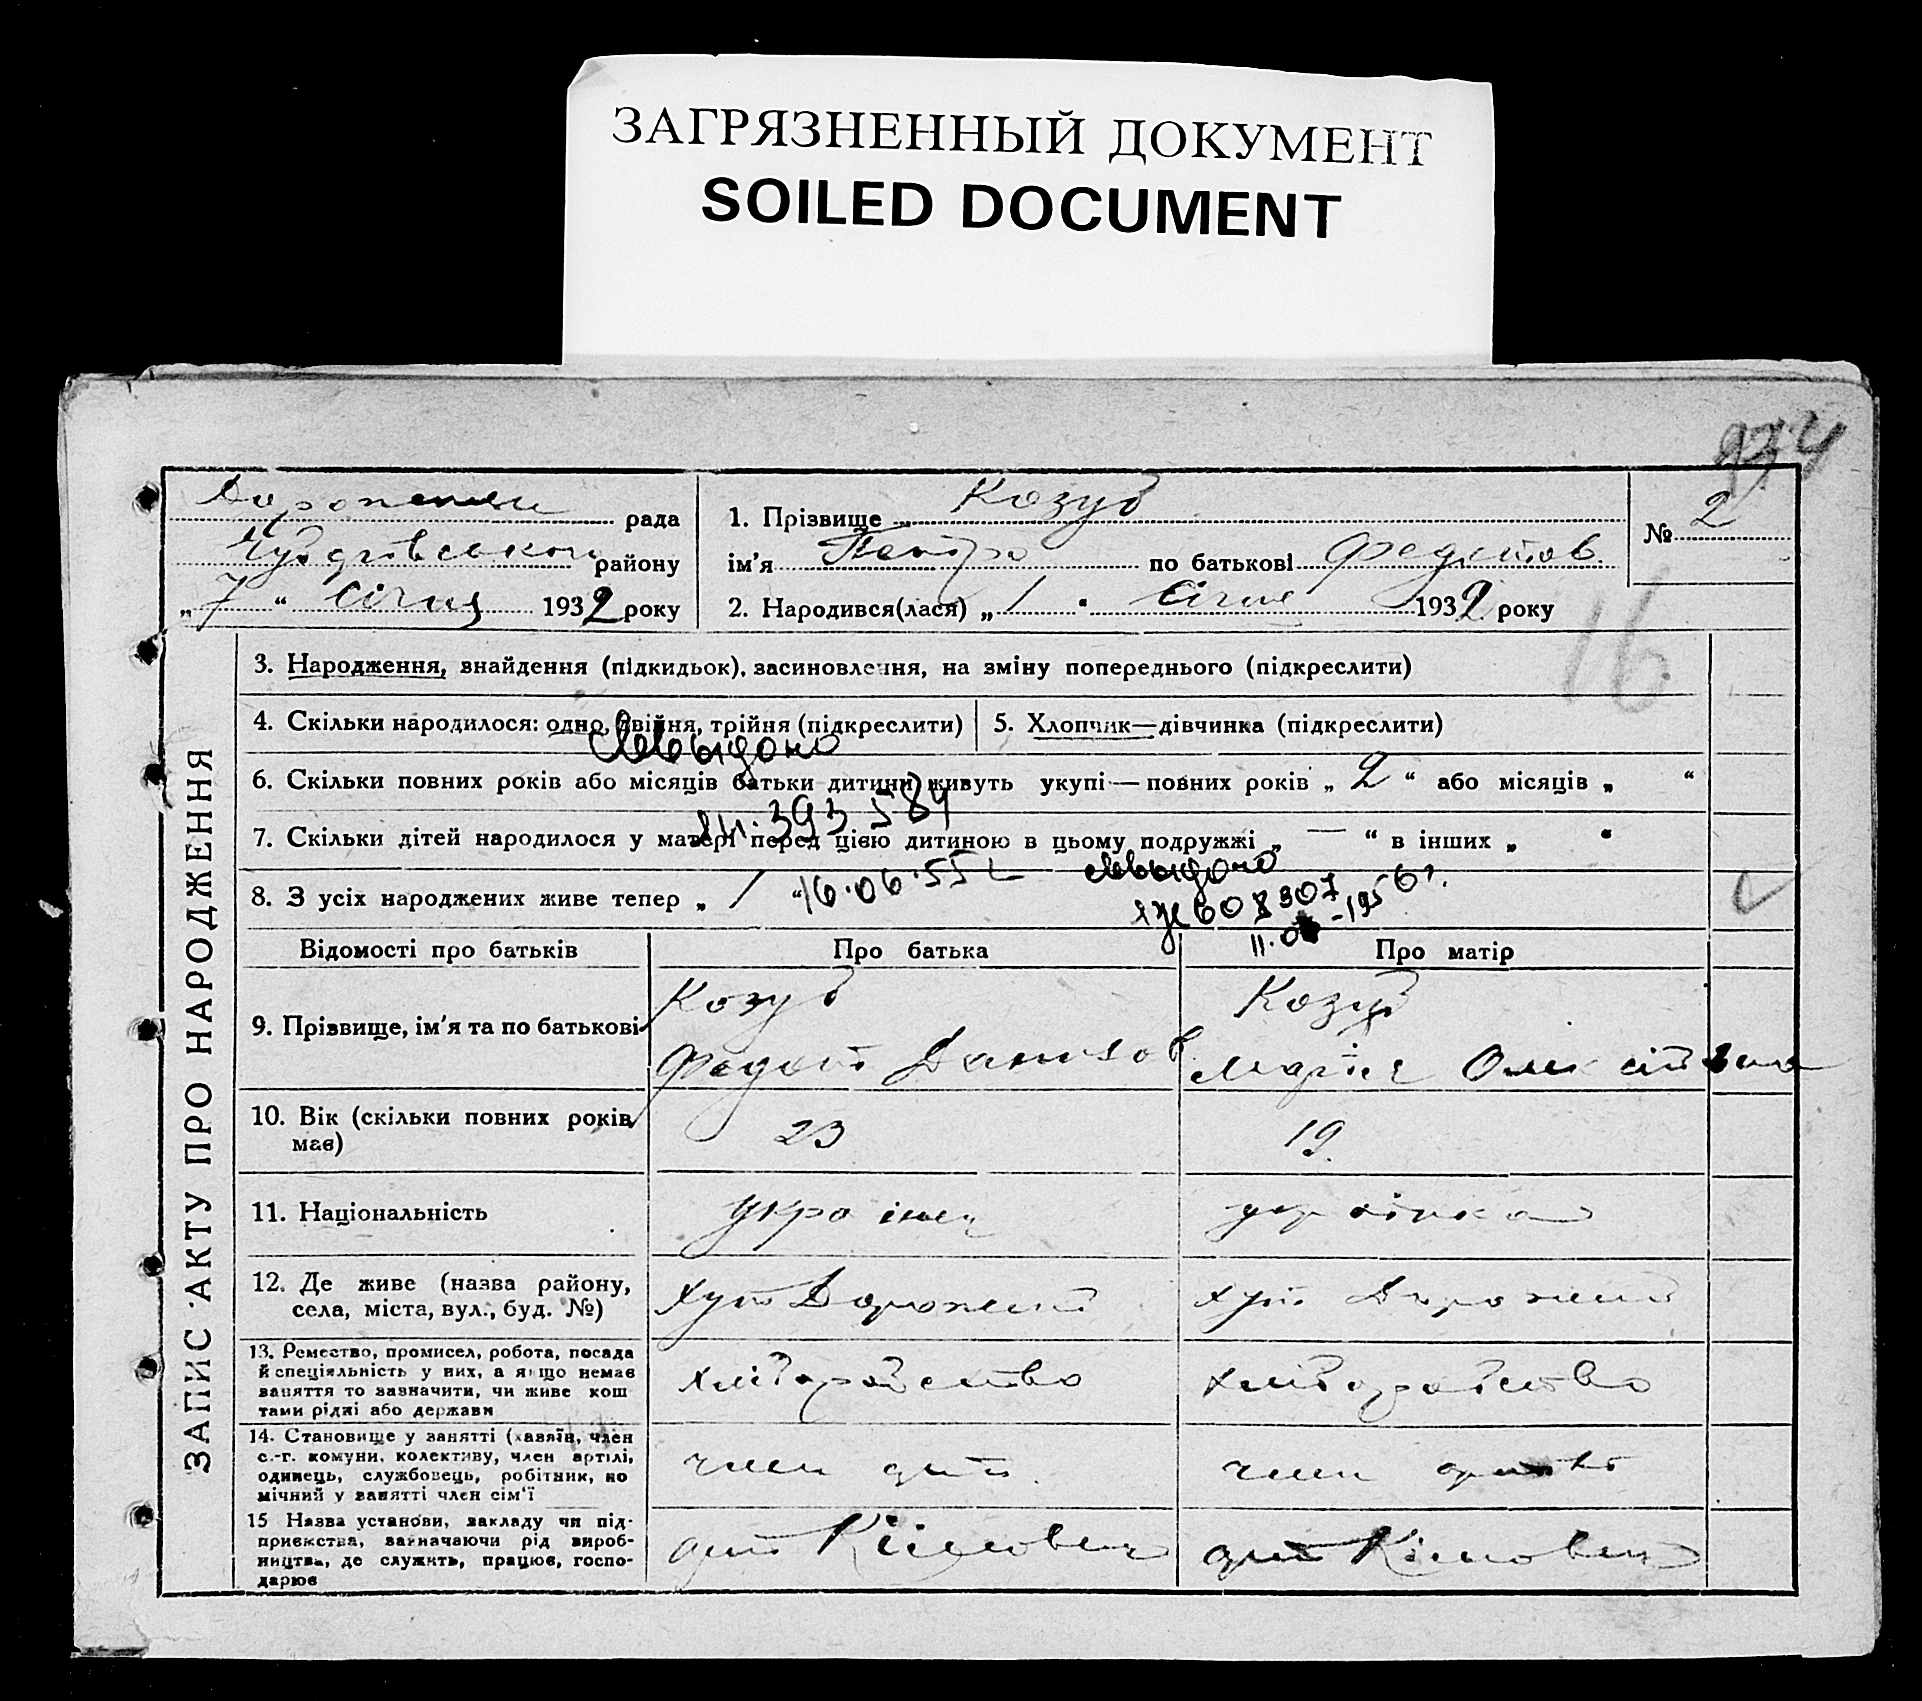 ЗАГРЯЗНЕННЫЙ ДОКУМЕНТ
SOILED DOCUMENT
рада
району
„ 7 “ Січня 1932 року
1. Прізвище Козуб
ім'я Петро по батькові Федотов.
2. Народився(лася) „ 1 “ Січня 1932 року
№ 2
16
ЗАПИС АКТУ ПРО НАРОДЖЕННЯ
3. Народження, внайдення (підкидьок), засиновлення, на зміну попереднього (підкреслити)
4. Скільки народилося: одно, двійня, трійня (підкреслити)
5. Хлопчик—дівчинка (підкреслити)
6. Скільки повних років або місяців батьки дитини живуть укупі — повних років „ 2 “ або місяців „ “
7. Скільки дітей народилося у матері перед цією дитиною в цьому подружжі „ — “ в інших „ “
8. З усіх народжених живе тепер „ 1 “
393584
16.06.55
Відомості про батьків
Про батька
Про матір
9. Прізвище, ім'я та по батькові
Козуб
Федот Данилов
Козуб
Марія Олексіївна
10. Вік (скільки повних років має)
23
19
11. Національність
українець
українка
12. Де живе (назва району, села, міста, вул., буд. №)
хут
хут
13. Ремество, промисел, робота, посада
й спеціяльність у них, а якщо немає
заняття то зазначити, чи живе кош
тами рідні або держави
хліборобство
хліборобство
14. Становище у занятті (хазяїн, член
с.-г. комуни, колективу, член артілі,
одинець, службовець, робітник, по
мічний у занятті член сім'ї
член
член
15 Назва установи, закладу чи під-
приємства, зазначаючи рід вироб-
ництва, де служить, працює, госпо-
дарює